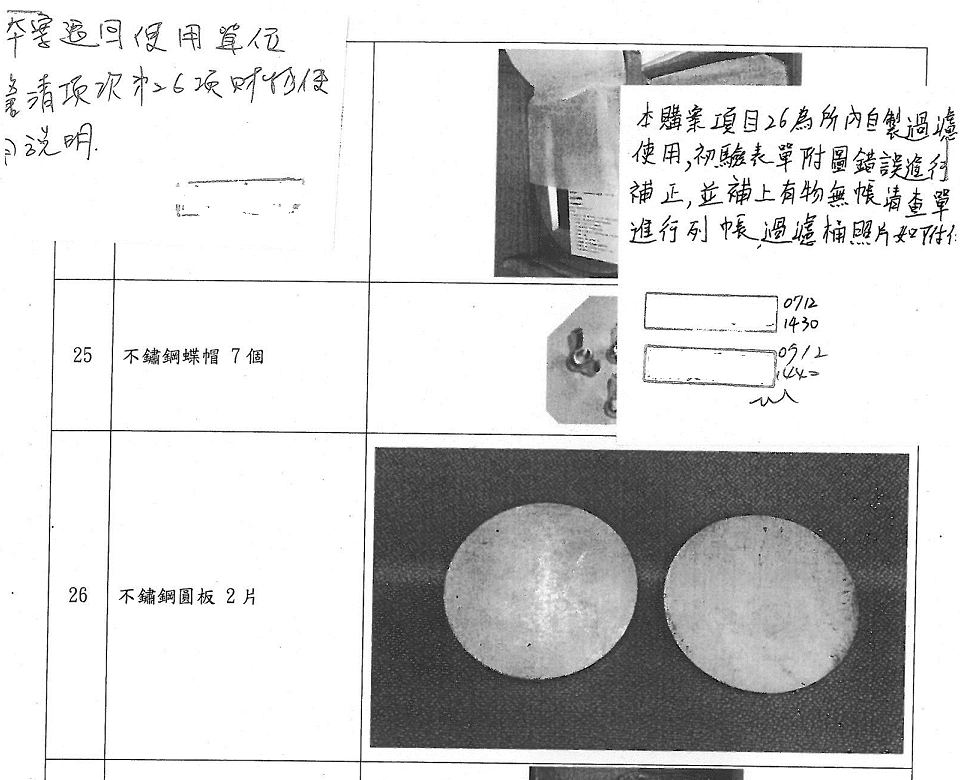 本案退回使用單位
請項次第26項財物使
說明.
本購案項目26為所內自製過濾
使用,初驗表單附圖錯誤進行
補正,並補上有物無帳清查單
進行列帳,過濾桶照片如附件
0712
1430
0712
1440
25 不鏽鋼蝶帽 7個
26 不鏽鋼圓板 2片